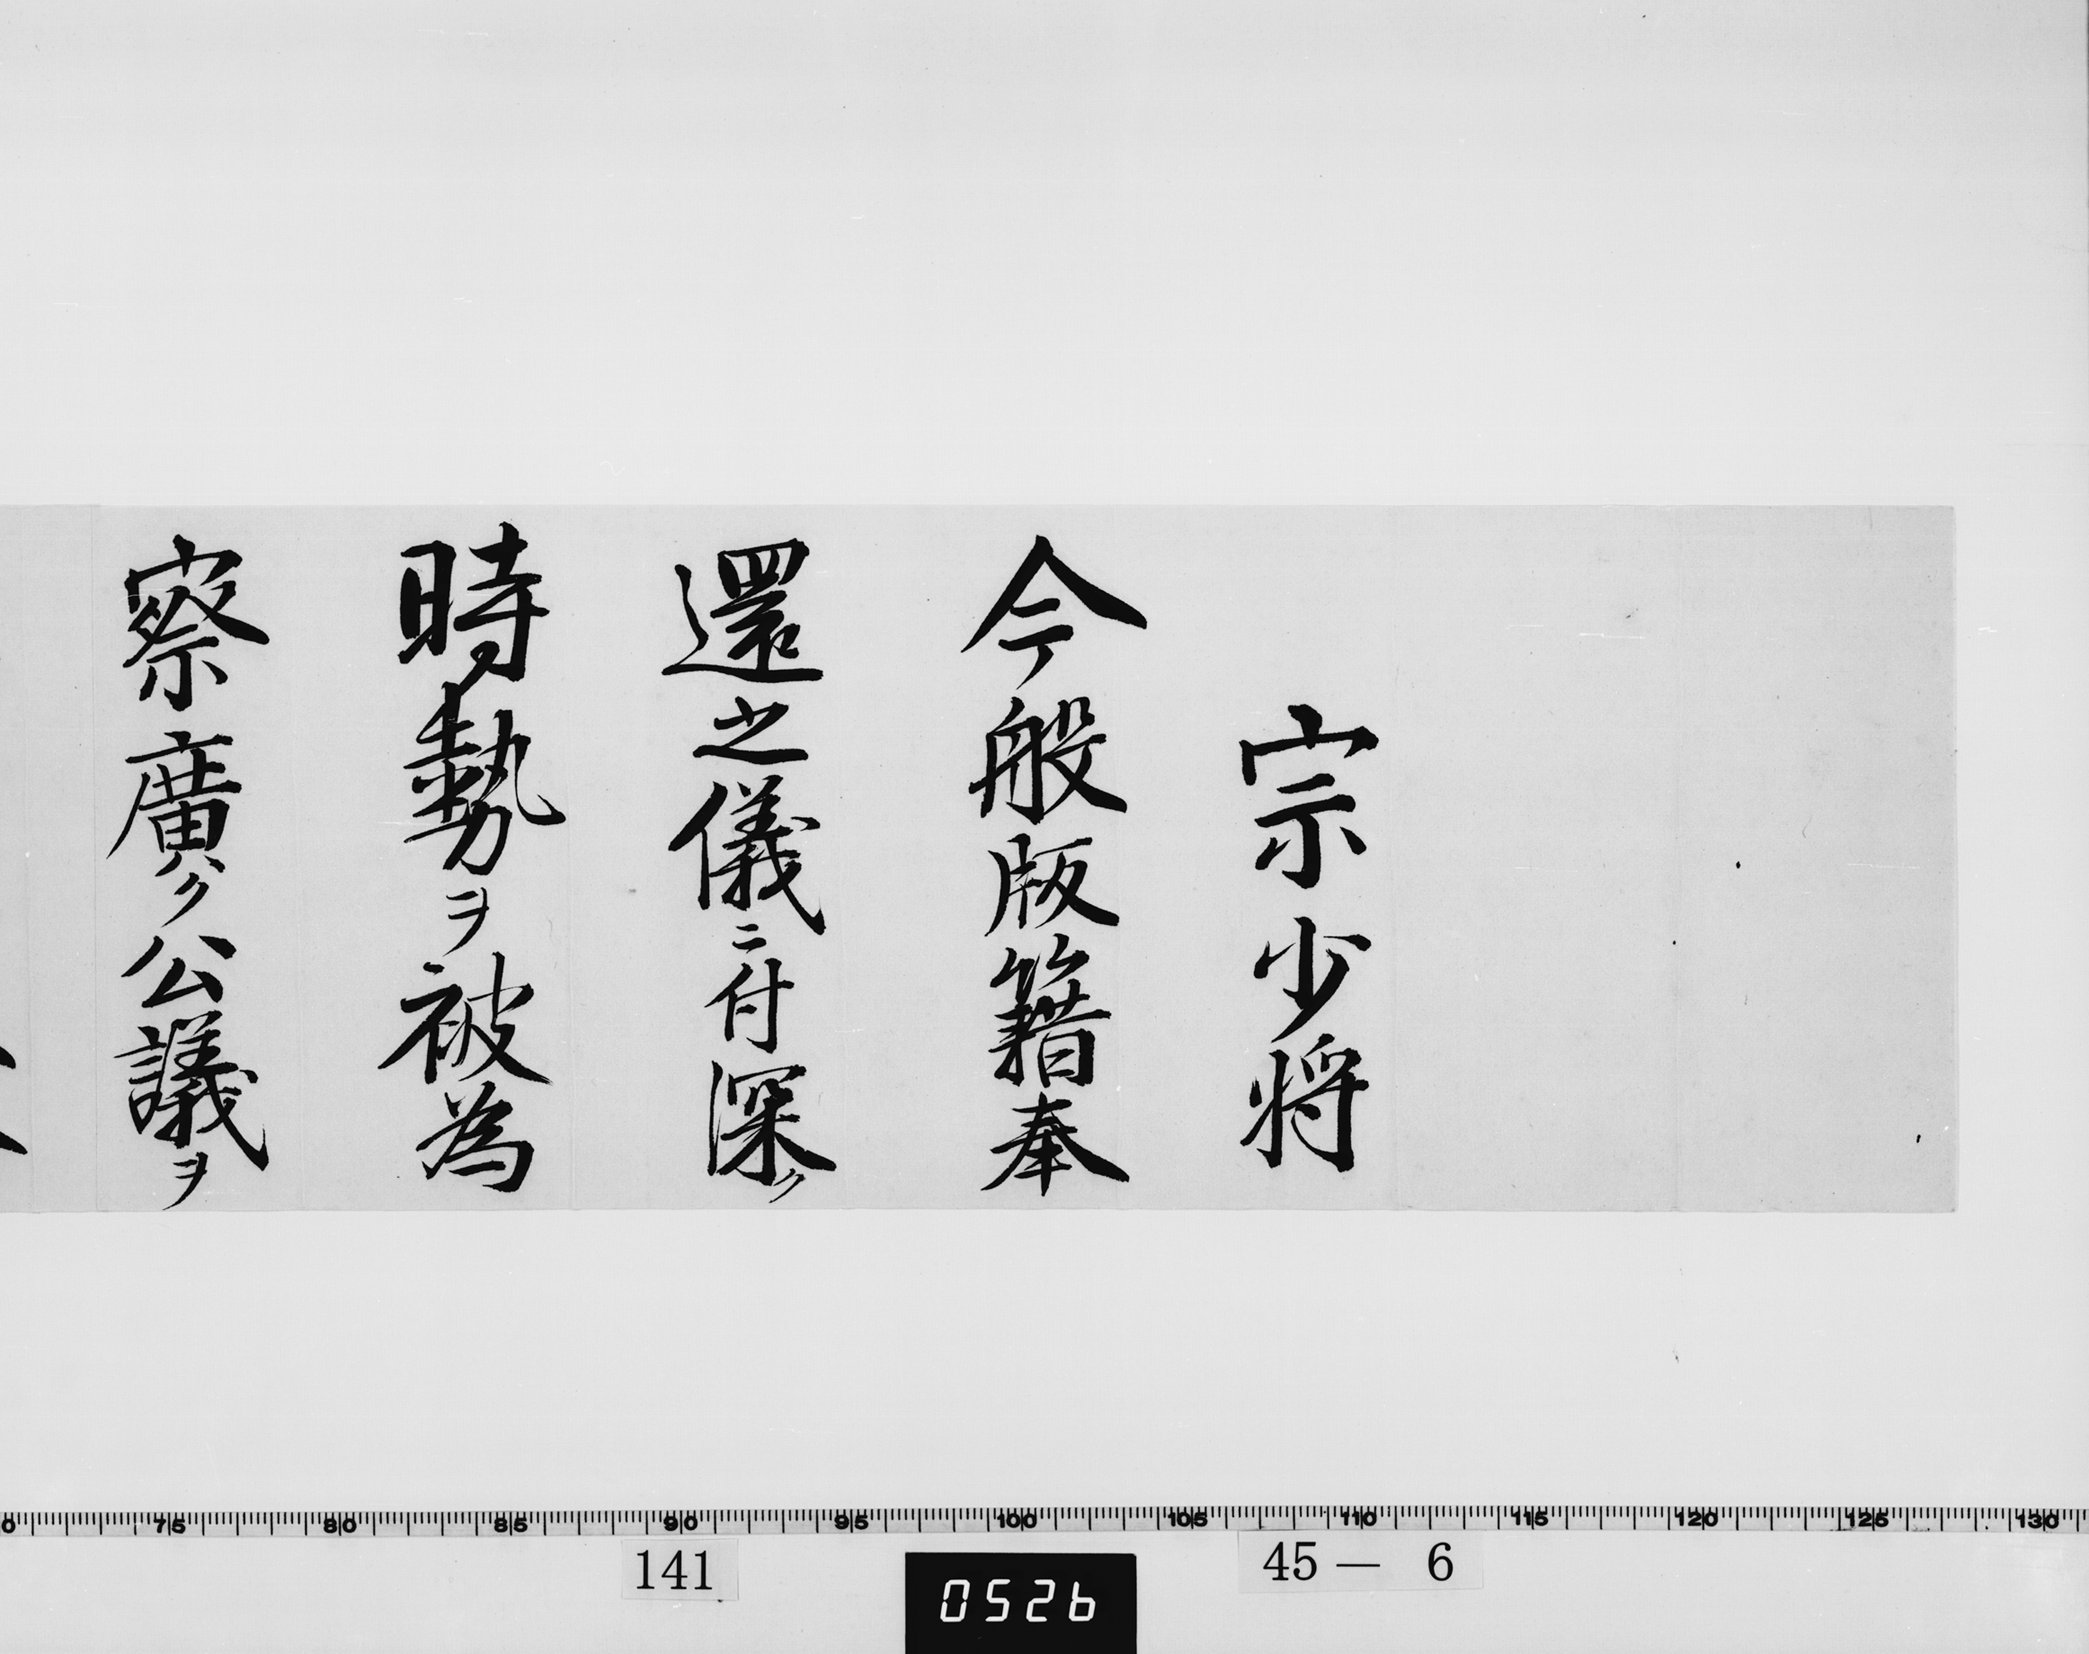 宗少将
今般版籍奉
還之儀ニ付深ク
時勢ヲ被為
察廣ク公議ヲ
0 75 80 85 90 95 100 105 110 115 120 125 130
141
45― 6
0526